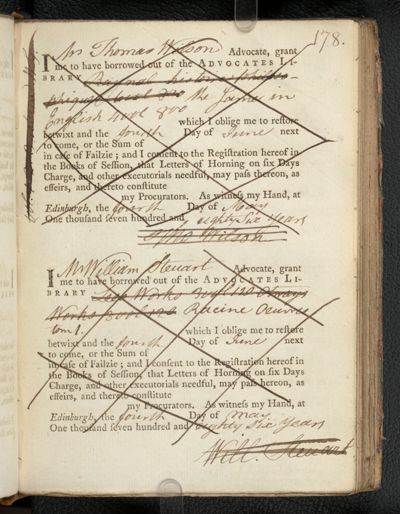 178.
I Mr Thomas Wilson Advocate, grant
me to have borrowed out of the ADVOCATES LI-
BRARY Raynal histoire philoso-
phique 3 vol 8vo the same in
English 4 vol 8vo which I oblige me to restore
betwixt and the fourth Day of June next
to come, or the Sum of
in case of Failzie; and I consent to the Registration hereof in
the Books of Session, that Letters of Horning on six Days
Charge, and other executorials needful, may pass thereon, as
effeirs, and thereto constitute
my Procurators. As witness my Hand, at
Edinburgh, the fourth Day of May
One thousand seven hundred and eighty six Years
Tho Wilson
I Mr William Steuart Advocate, grant
me to have borrowed out of the ADVOCATES LI-
BRARY Works
Works Racine Oeuvres
tom 1. which I oblige me to restore
betwixt and the fourth Day of June next
to come, or the Sum of
in case of Failzie; and I consent to the Registration hereof in
the Books of Session, that Letters of Horning on six Days
Charge, and other executorials needful, may pass hereon, as
effeirs, and thereto constitute
my Procurators. As witness my Hand, at
Edinburgh, the fourth Day of may
One thousand seven hundred and eighty six Years
Will. Steuart